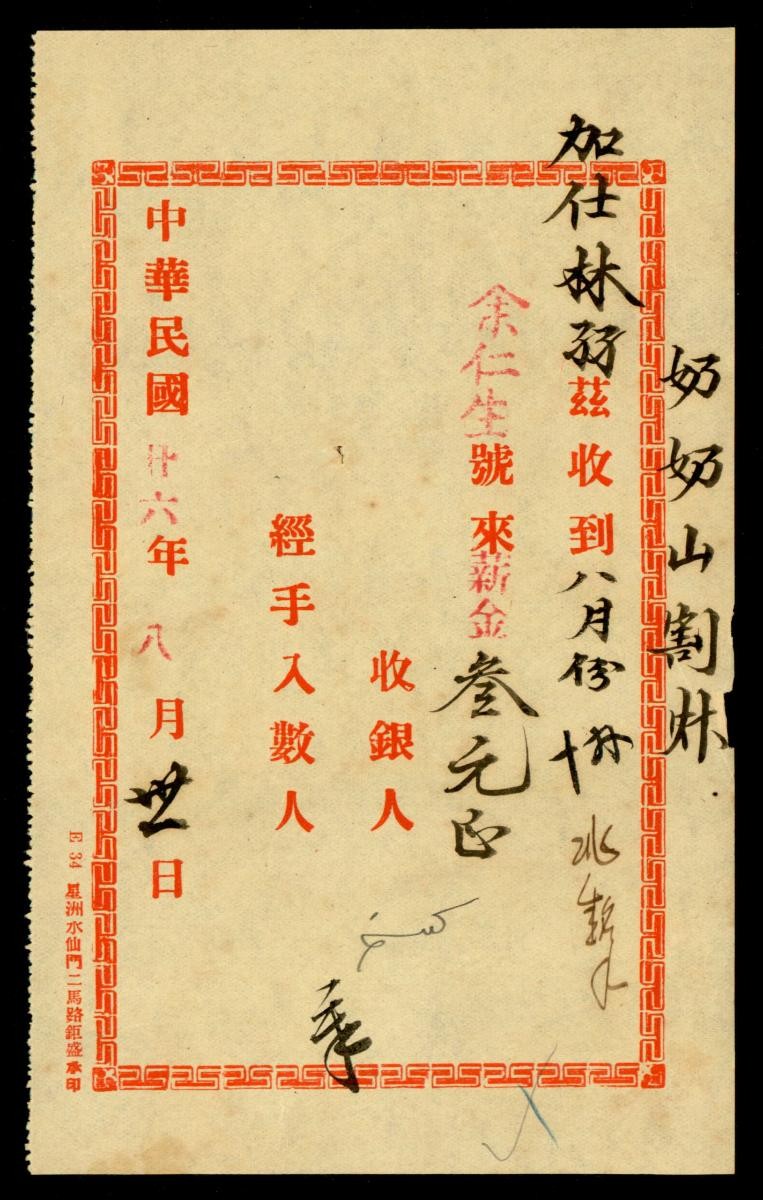 奶奶山割
加仕林 茲收到八月份
余仁生號來薪金叁元正
收銀人
經手入數人
中華民國廿六年八月卅一日
E 34 星洲水仙門二馬路鉅盛承印